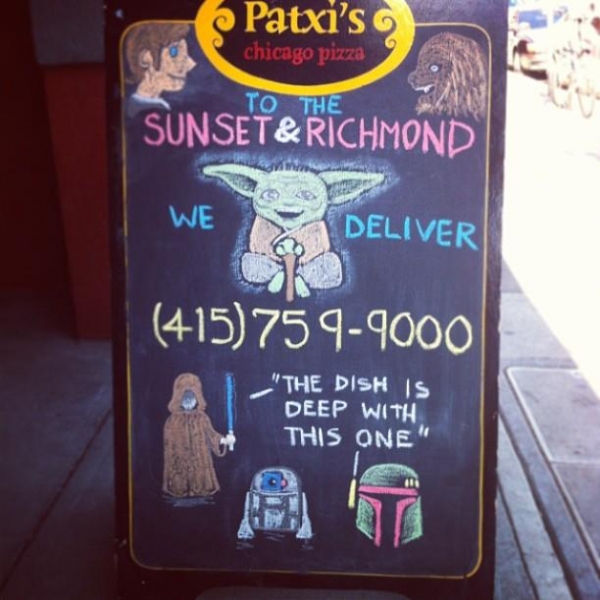 Patxi's
chicago pizza
TO THE
SUNSET & RICHMOND
WE DELIVER
(415)759-9000
"THE DISH IS
DEEP WITH
THIS ONE"